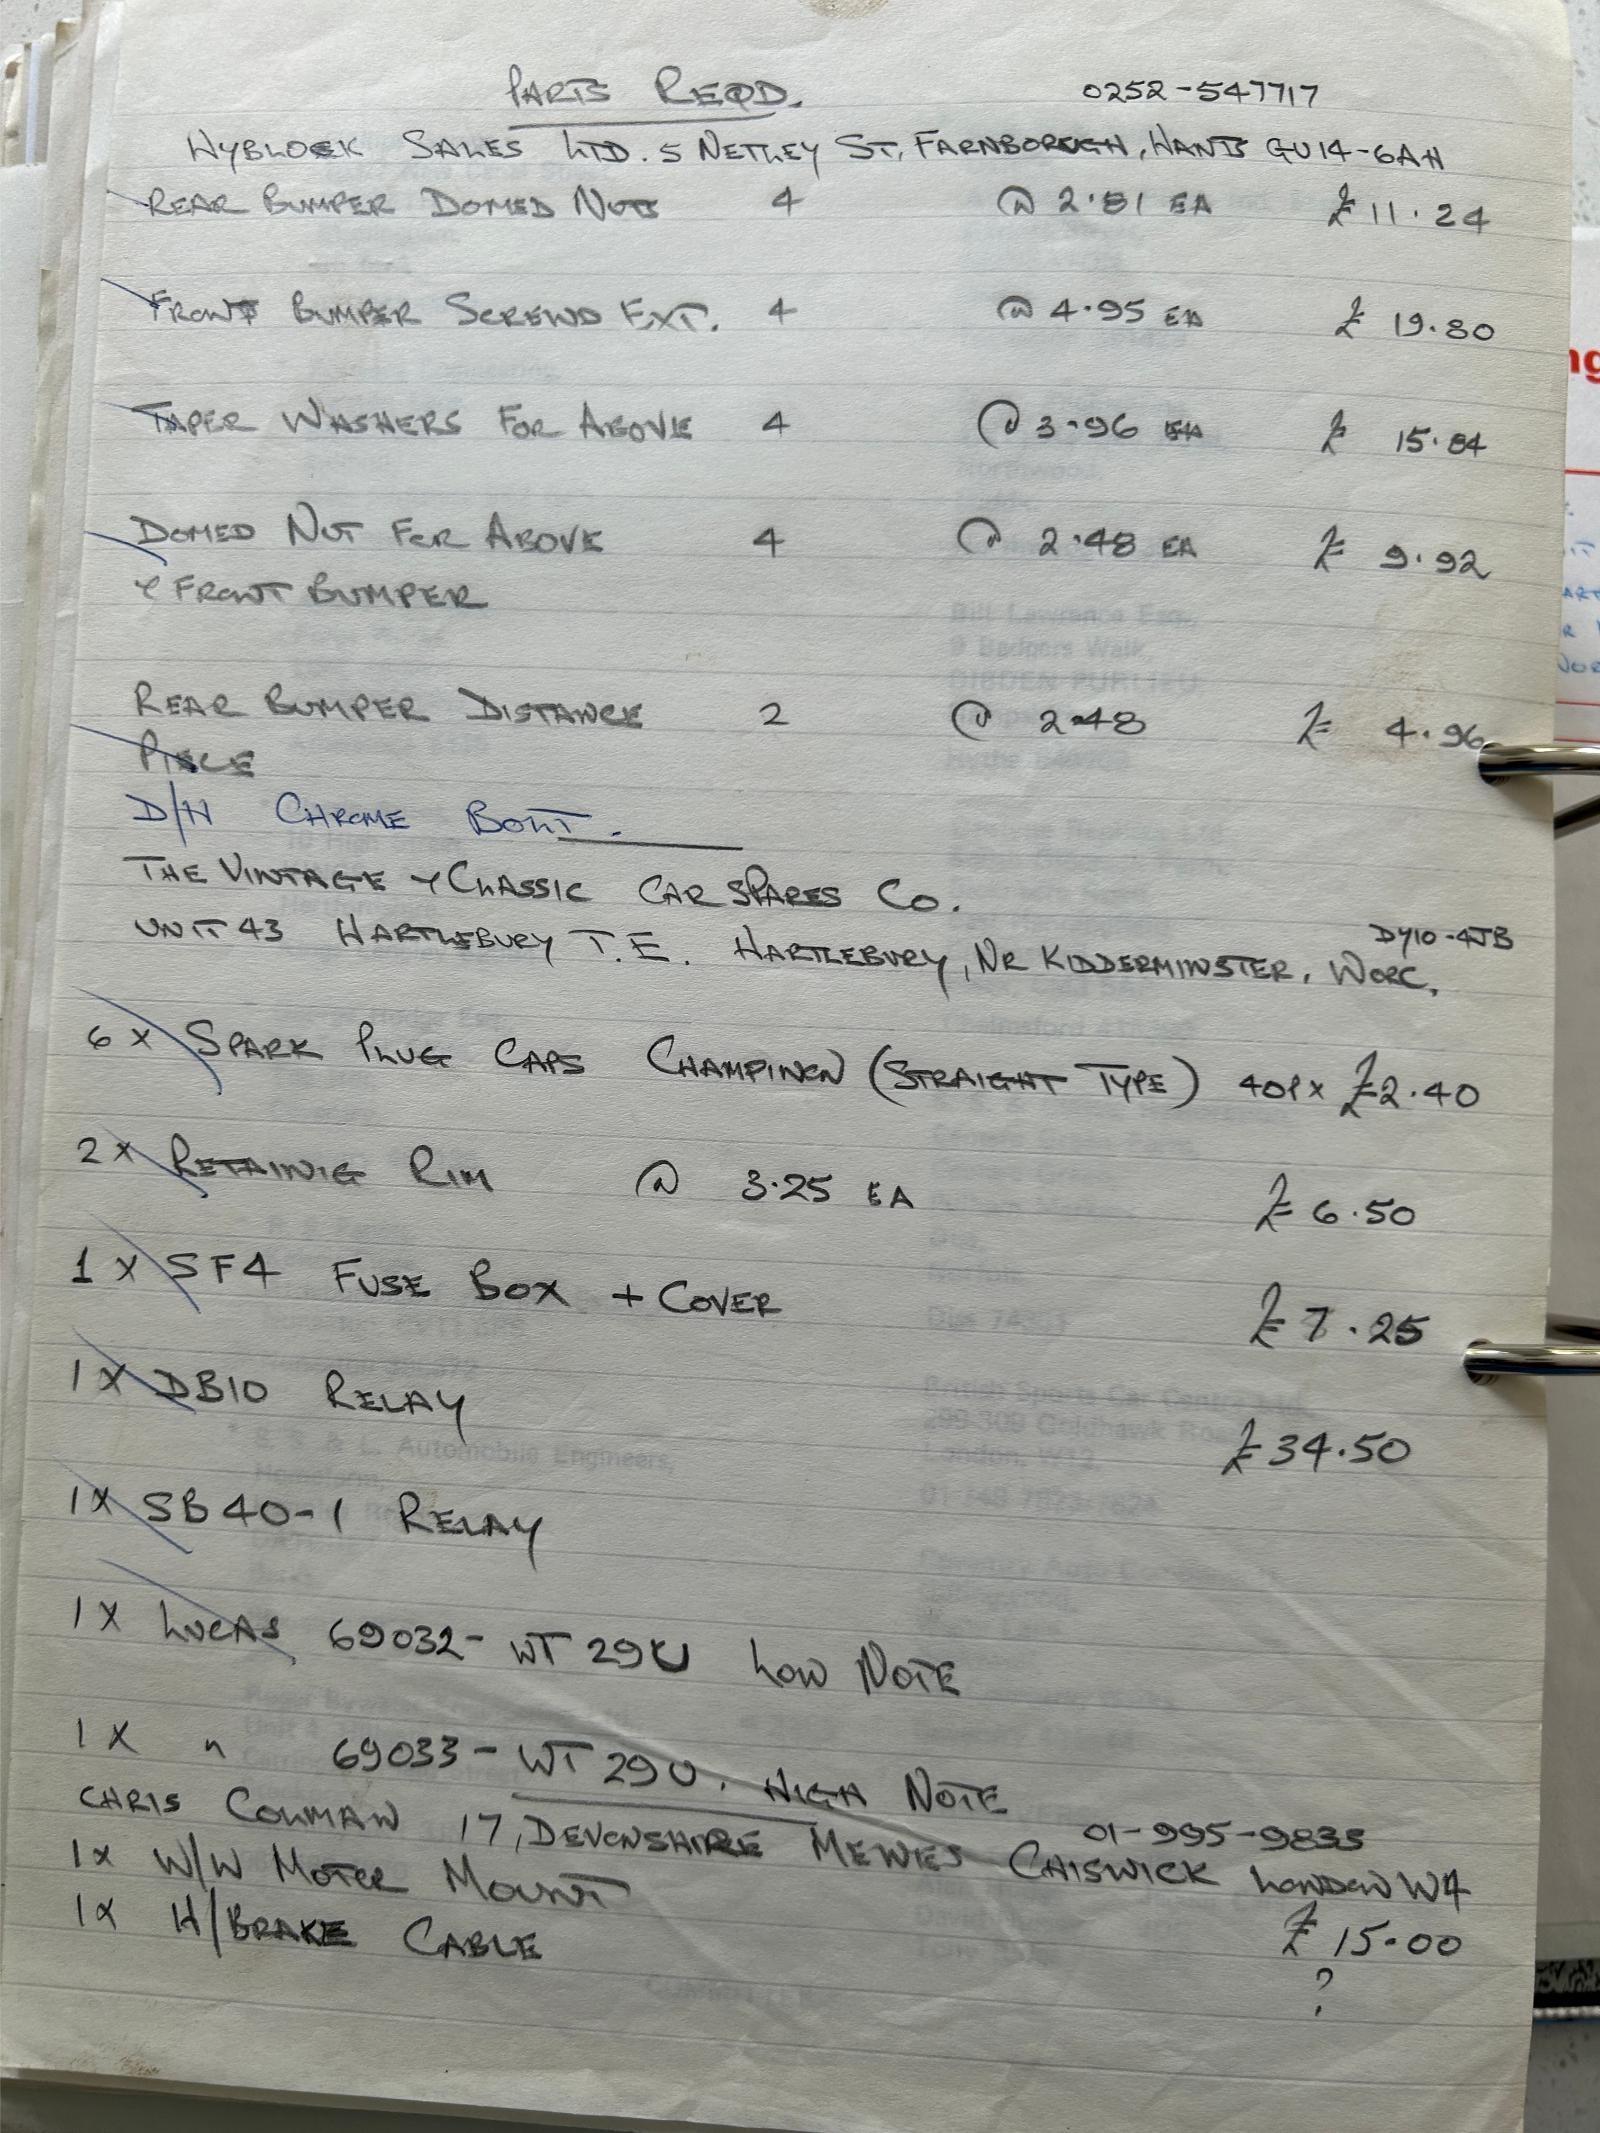 PARTS REQD. 0252-547717
WYBLOCK SALES LTD. 5 NETLEY ST, FARNBOROUGH, HANTS GU14-6AH
REAR BUMPER DOMED NUTS 4 @ 2.81 EA £11.24
FRONT BUMPER SCREWD EXT. 4 @ 4.95 EA £ 19.80
TAPER WASHERS FOR ABOVE 4 @ 3.96 EA £ 15.84
DOMED NUT FOR ABOVE 4 @ 2.48 EA £ 9.92
& FRONT BUMPER
REAR BUMPER DISTANCE 2 @ 2.48 £ 4.96
PIECE
D/H CHROME BOLT.
THE VINTAGE & CLASSIC CAR SPARES Co.
UNIT 43 HARTLEBURY T.E. HARTLEBURY, NR KIDDERMINSTER, WORC, DY10-4JB
6 X SPARK PLUG CAPS CHAMPINON (STRAIGHT TYPE) 40P X £2.40
2 X RETAINIG RIM @ 3.25 EA £ 6.50
1 X SF4 FUSE BOX + COVER £ 7.25
1 X DB10 RELAY £34.50
1X SB40-1 RELAY
1 X LUCAS 69032- WT 29U LOW NOTE
1 X " 69033- WT 29U. HIGH NOTE
01-995-9835
CHRIS COLMAN 17, DEVONSHIRE MEWES CHISWICK LONDON W4
1X W/W MOTOR MOUNT £ 15.00
1X H/BRAKE CABLE ?
Bill Lawrence Esq.,
9 Badgers Walk,
DIBDEN PURLIEU
S. S. & L. Automobile Engineers,
London, W12